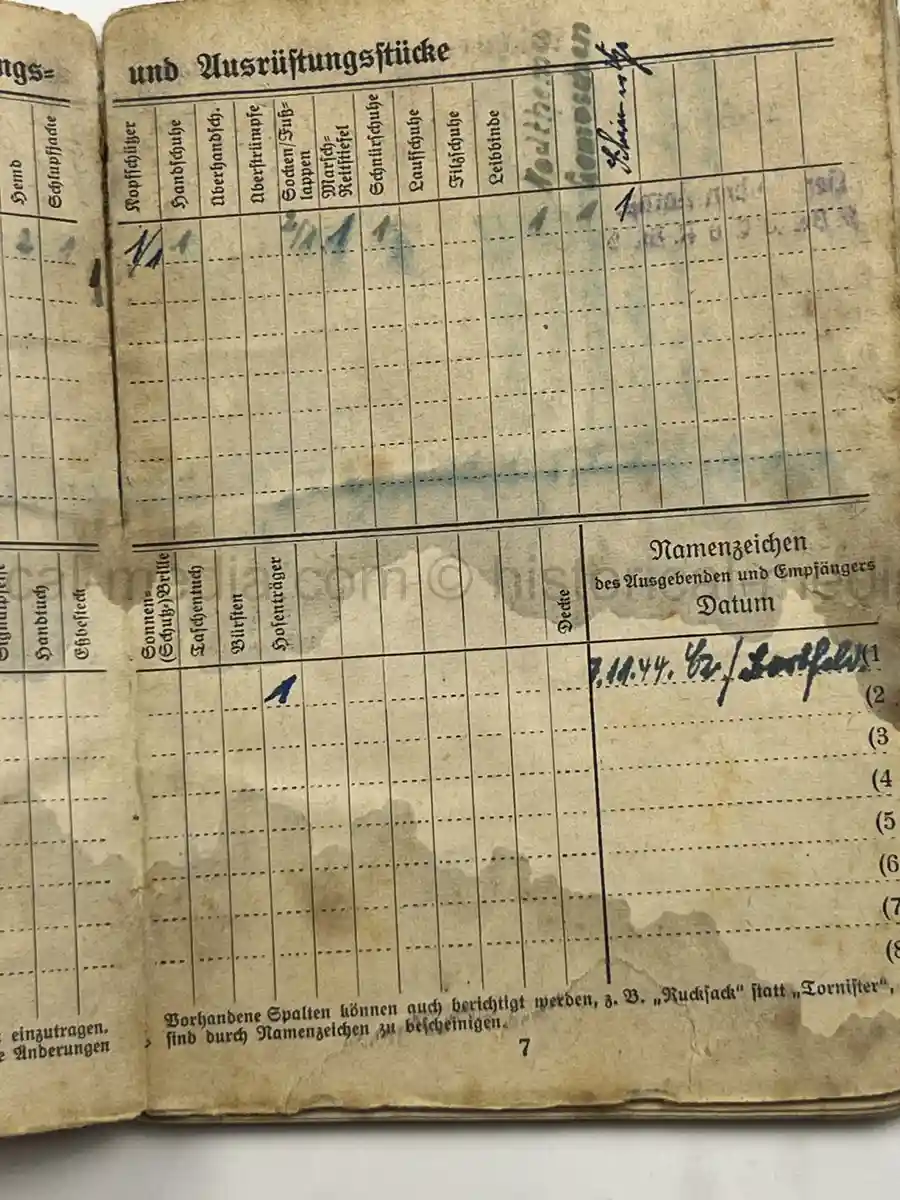 ngs=
Hemd
Schlupfjacke
2 1
Handtuch
Eßbesteck
einzutragen.
Änderungen
und Ausrüstungsstücke
Kopfschützer
Handschuhe
Überhandsch.
Überstrümpfe
Socken/Fuß=
lappen
Marsch=
Reitstiefel
Schnürschuhe
Laufschuhe
Filzschuhe
Leibbinde
Gamaschen
1/1 1 2/1 1 1 1 1 1
Sonnen=
(Schutz=)Brille
Taschentuch
Bürsten
Hosenträger
Decke
Namenzeichen
des Ausgebenden und Empfängers
Datum
1
11.44.
(1
(2
(3
(4
(5
(6
(7
(8
Vorhandene Spalten können auch berichtigt werden, z. B. „Rucksack“ statt „Tornister“,
sind durch Namenzeichen zu bescheinigen.
7